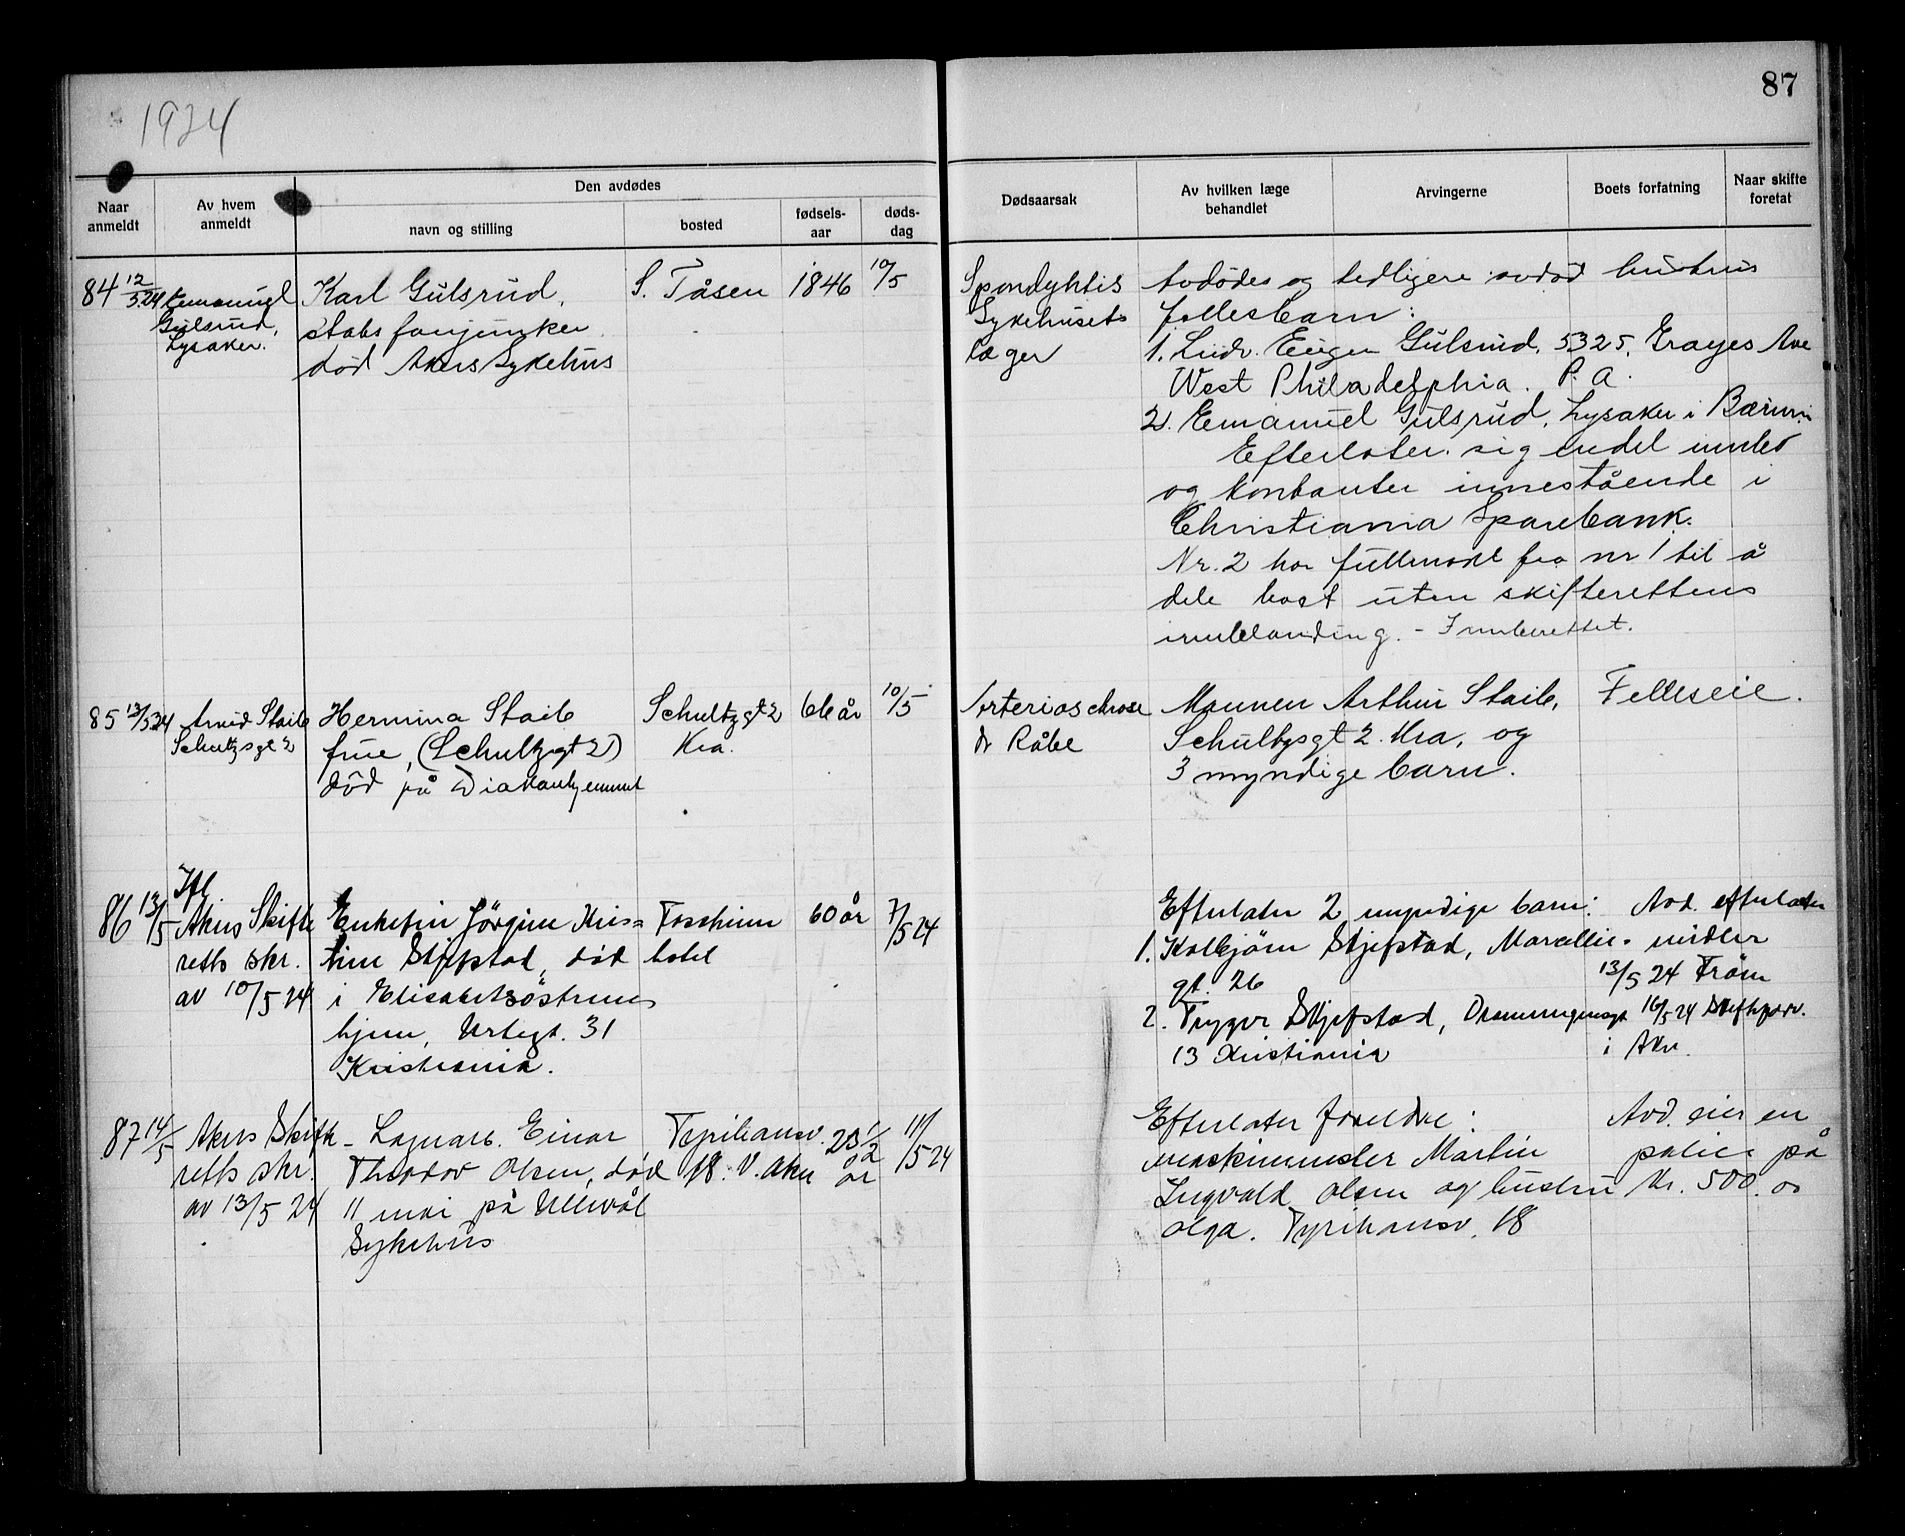 1924
87
Naar anmeldt
Av hvem anmeldt
Den avdødes
navn og stilling
bosted
fødsels-aar
døds-dag
Dødsaarsak
Av hvilken læge behandlet
Arvingerne
Boets forfatning
Naar skifte foretat
84 12/5.24 Emanuel
Gulsrud,
Lysaker.
Karl Gulsrud,
stabsfanjunker
død Akers Sykehus
S. Tåsen
1846
10/5
Spondylitis
Sykehusets
læger
Avdødes og tedligere avdød hustrus
fellesbarn:
1. Ludv. Eugen Gulsrud, 5325, Grayes Ave
West Philadelphia. P. A.
2. Emanuel Gulsrud, Lysaker i Bærum
Efterlater sig endel innbo
og kontanter innestående i
Christiania Sparebank.
Nr. 2 har fullmakt fra nr 1 til å
dele boet uten skifterettens
innblanding. - Innberettet.
85 13/5 24 Arvid Staib
Schultzsgt 2
Hermina Staib
frue, (Schultzgt 2)
død på Diakonhjemmet
Schultzgt 2
Kra.
66 år
10/5
Arteriosclerose
dr Råbe
Mannen Arthur Staib,
Schultzsgt 2. Kra, og
3 myndige barn.
Felleseie.
86 13/5
Ifl
Akers Skifte
retts skr.
av 10/5 24
Enkefru Jörgine Kris=
tine Skjefstad, død
i Elisabetsöstrenes
hjem, Urtegt. 31
Kristiania.
Fossheim
hotel
60 år
7/5 24
Efterlater 2 myndige barn:
1. Kolbjörn Skjefstad, Marcellie-
gt. 26
2. Trygve Skjefstad, Drammensgt
13 Kristiania
Avd. efterlater
midler
13/5 24 Tröm
16/5 24 Skifteforv.
i Aker.
87 14/5
Akers Skifte-
retts skr.
av 13/5 24
Lagerarb. Einar
Theodor Olsen, død
11 mai på Ullevål
Sykehus
Tyrihansv.
18. V. Aker
23 1/2
år
11/5 24
Efterlater foreldre:
maskinmester Martin
Ingvald Olsen og hustru
Olga. Tyrihansv. 18
Avd. eier en
police på
Kr. 500.00